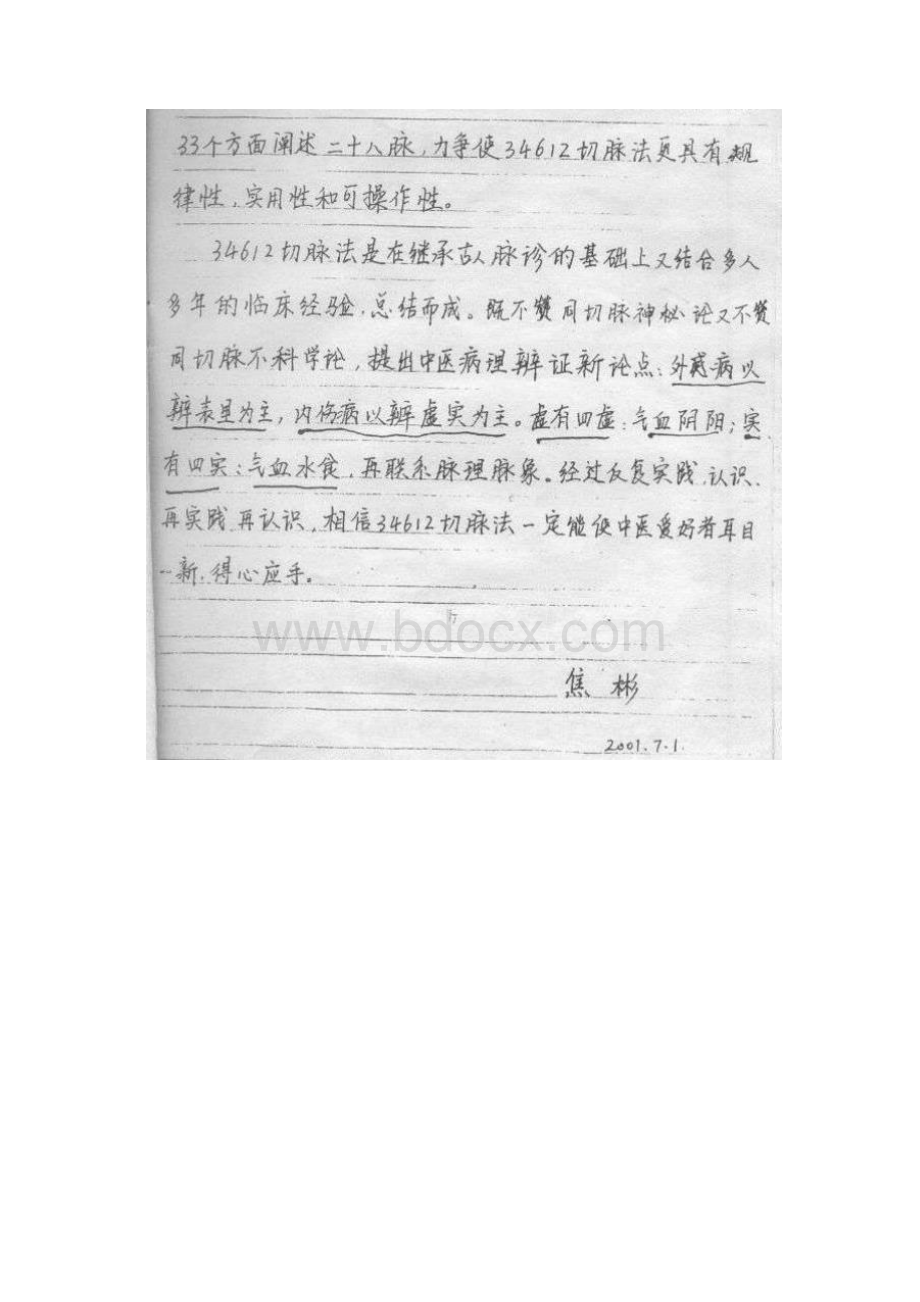 33个方面阐述二十八脉,力争使34612切脉法更具有规
律性、实用性和可操作性。
34612切脉法是在继承古人脉诊的基础上又结合多人
多年的临床经验,总结而成。既不赞同切脉神秘论又不赞
同切脉不科学论,提出中医病理辨证新论点:外感病以
辨表里为主,内伤病以辨虚实为主。虚有四虚:气血阴阳;实
有四实:气血水食,再联系脉理脉象。经过反复实践、认识、
再实践、再认识,相信34612切脉法一定能使中医爱好者耳目
一新、得心应手。
www.bdocx.com
焦彬
2001.7.1.